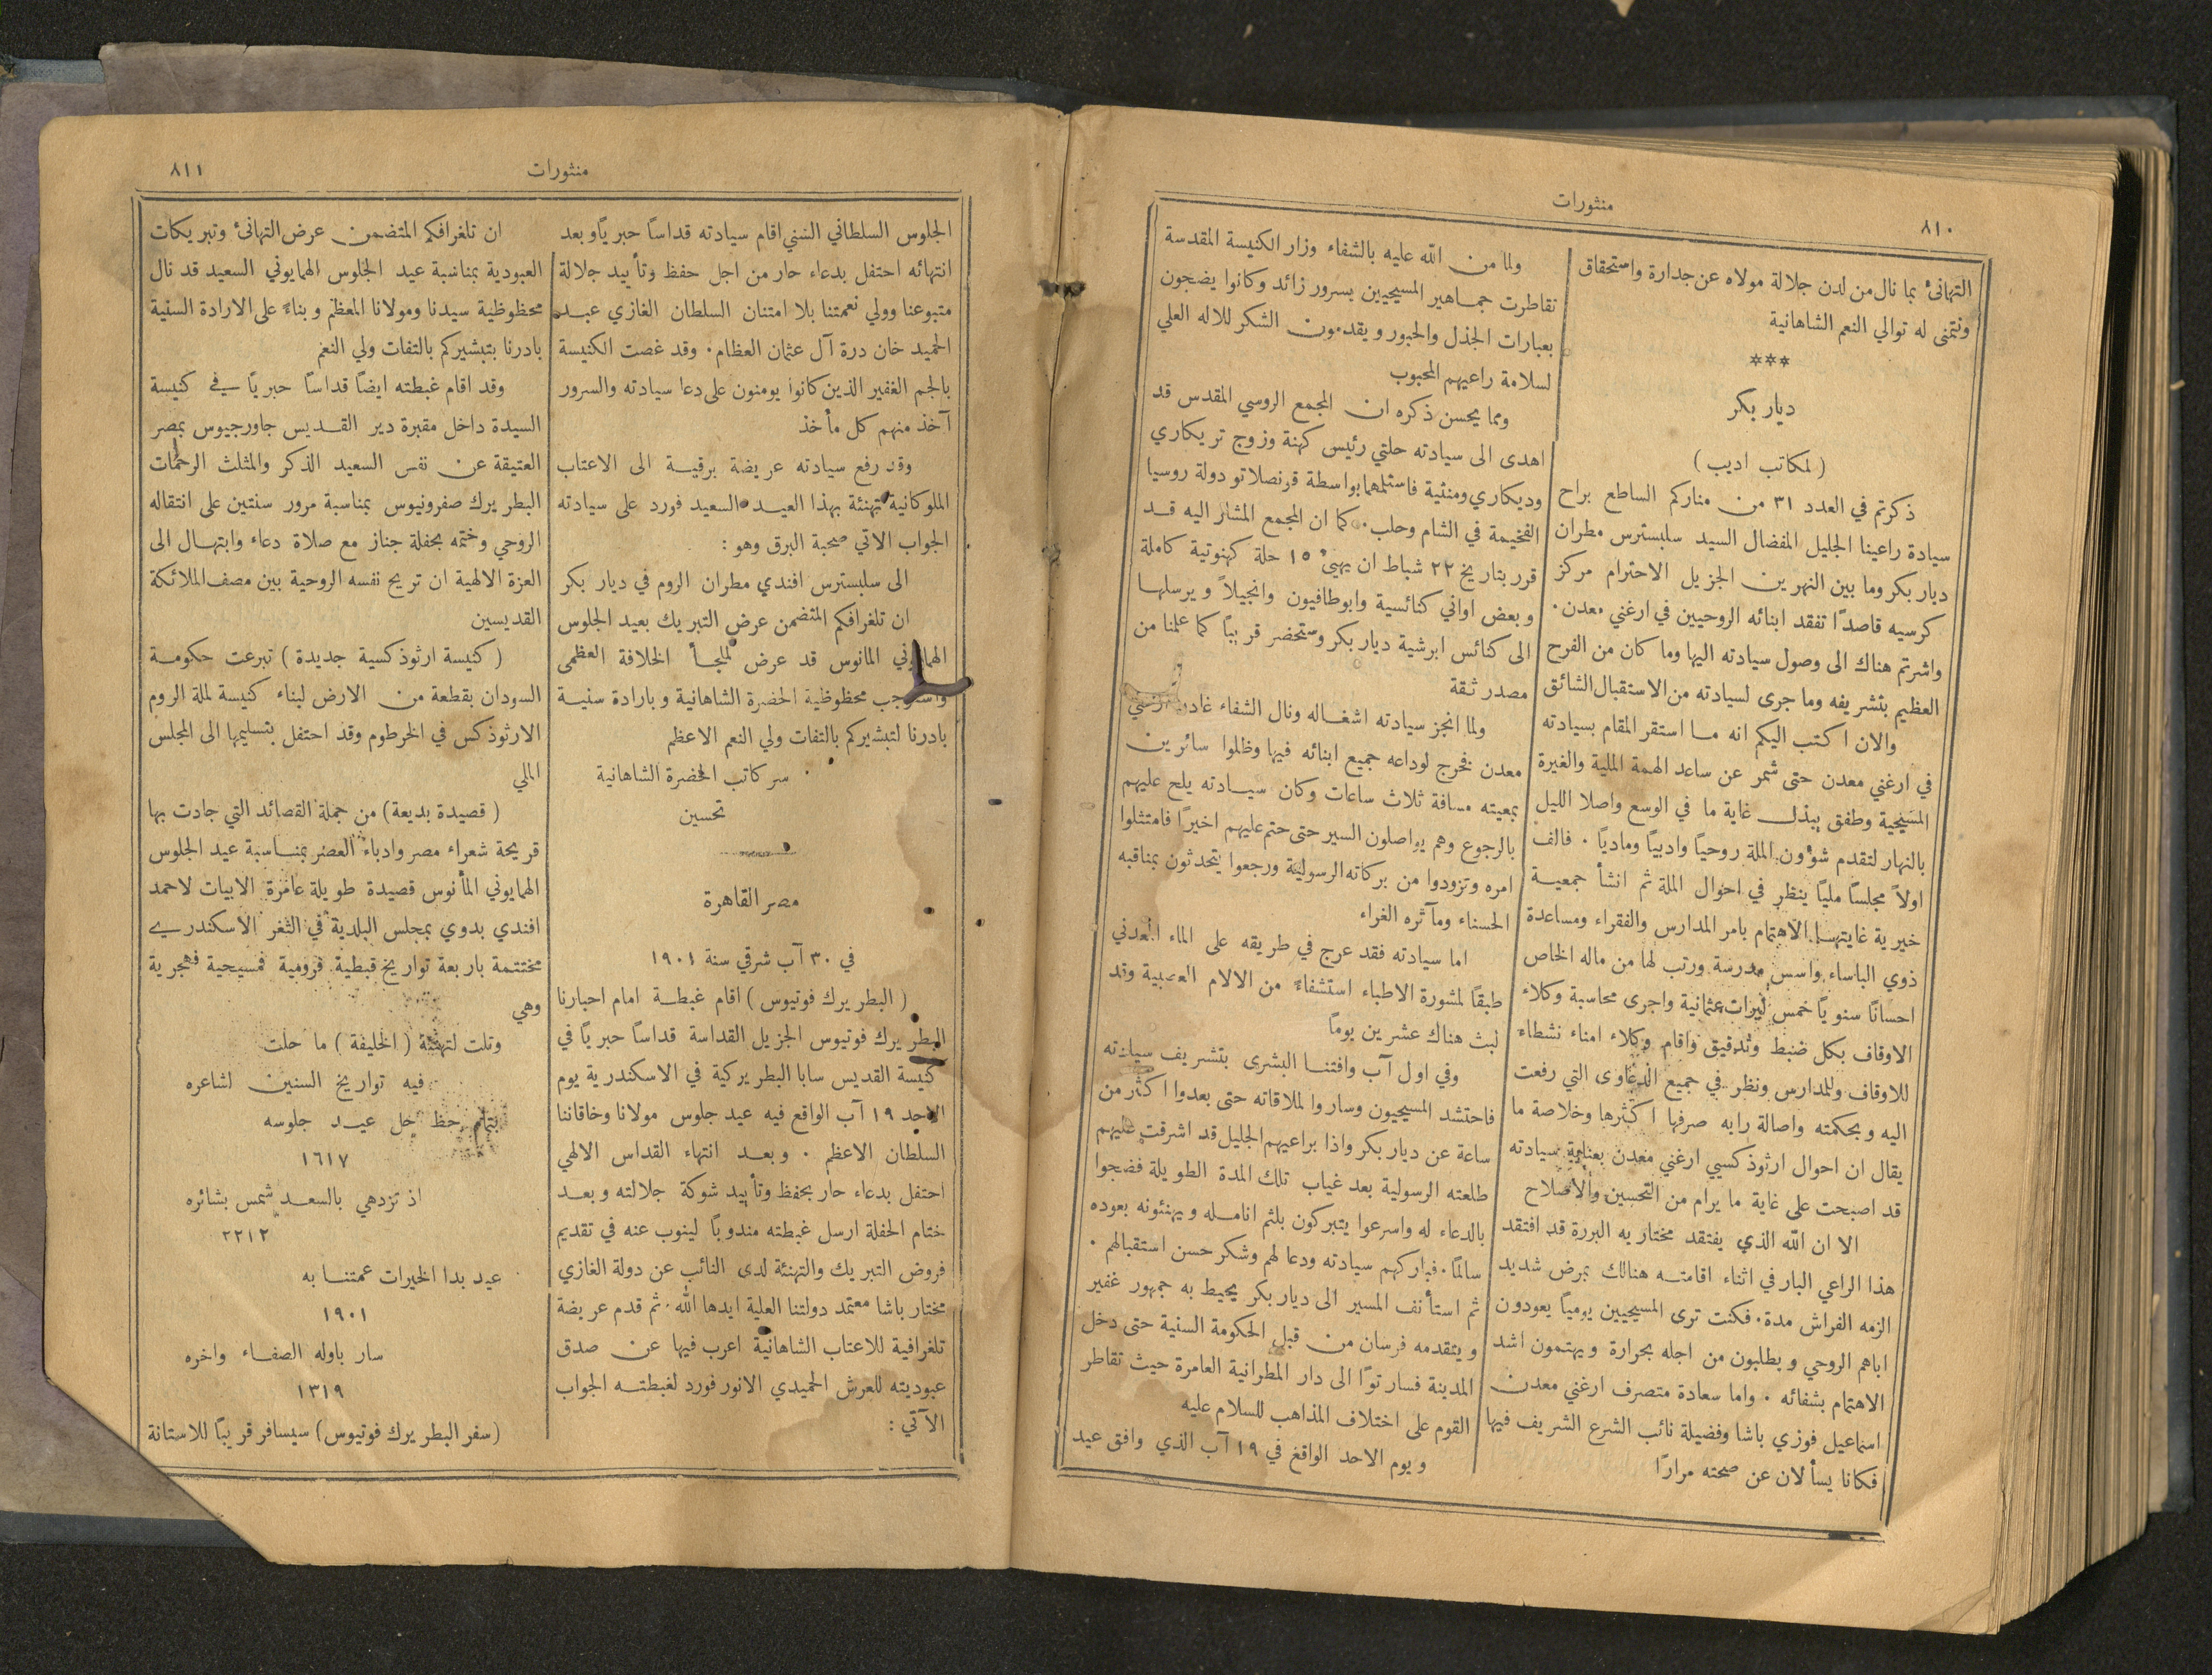 منثورات
٨١٠
التهانئ بما نال من لدن جلالة مولاه عن جدارة واستحقاق
ونتمنى له توالي النعم الشاهانية
***
ديار بكر
( لمكاتب اديب )
ذكرتم في العدد ٣١ من مناركم الساطع براح
سيادة راعينا الجليل المفضال السيد سلبسترس مطران
ديار بكر وما بين النهرين الجزيل الاحترام مركز
كرسيه قاصدًا تفقد ابنائه الروحيين في ارغني معدن.
واشرتم هناك الى وصول سيادته اليها وما كان من الفرح
العظيم بتشريفه وما جرى لسيادته من الاستقبال الشائق
والان اكتب اليكم انه ما استقر المقام بسيادته
في ارغني معدن حتى شمر عن ساعد الهمة الملية والغيرة
المسيحية وطفق يبذل غاية ما في الوسع واصلا الليل
بالنهار لتقدم شؤون الملة روحيًا وادبيًا وماديًا . فالف
اولاً مجلسًا مليًا ينظر في احوال الملة ثم انشأ جمعية
خيرية غايتها الاهتمام بامر المدارس والفقراء ومساعدة
ذوي الباساء واسس مدرسة ورتب لها من ماله الخاص
احسانًا سنويًا خمس ليرات عثمانية واجرى محاسبة وكلاء
الاوقاف بكل ضبط وتدقيق واقام وكلاء امناء نشطاء
للاوقاف وللمدارس ونظر في جميع الدعاوى التي رفعت
اليه وبحكمته واصالة رايه صرفها اكثرها وخلاصة ما
يقال ان احوال ارثوذكسيي ارغني معدن بعناية سيادته
قد اصبحت على غاية ما يرام من التحسين والاصلاح
الا ان الله الذي يفتقد مختاريه البررة قد افتقد
هذا الراعي البار في اثناء اقامته هنالك بمرض شديد
الزمه الفراش مدة. فكنت ترى المسيحيين يوميًا يعودون
اباهم الروحي ويطلبون من اجله بحرارة ويهتمون اشد
الاهتمام بشفائه . واما سعادة متصرف ارغني معدن
اسماعيل فوزي باشا وفضيلة نائب الشرع الشريف فيها
فكانا يسألان عن صحته مرارًا
ولما من الله عليه بالشفاء وزار الكنيسة المقدسة
تقاطرت جماهير المسيحيين بسرور زائد وكانوا يضجون
بعبارات الجذل والحبور ويقدمون الشكر للاله العلي
لسلامة راعيهم المحبوب
ومما يحسن ذكره ان المجمع الروسي المقدس قد
اهدى الى سيادته حلتي رئيس كهنة وزوج تريكاري
وديكاري ومنثية فاستلمهما بواسطة قونصلاتو دولة روسيا
الفخيمة في الشام وحلب. كما ان المجمع المشار اليه قد
قرر بتاريخ ٢٢ شباط ان يهيئ ١٥ حلة كهنوتية كاملة
وبعض اواني كنائسية وابوطافيون وانجيلاً ويرسلها
الى كنائس ابرشية ديار بكر وستحضر قريبًا كما علمنا من
مصدر ثقة
ولما انجز سيادته اشغاله ونال الشفاء غادر ارغني
معدن فخرج لوداعه جميع ابنائه فيها وظلوا سائرين
بمعيته مسافة ثلاث ساعات وكان سيادته يلح عليهم
بالرجوع وهم يواصلون السير حتى حتم عليهم اخيرًا فامتثلوا
امره وتزودوا من بركاته الرسولية ورجعوا يتحدثون بمناقبه
الحسناء ومآثره الغراء
اما سيادته فقد عرج في طريقه على الماء المعدني
طبقًا لمشورة الاطباء استشفاءً من الالام العصبية وقد
لبث هناك عشرين يومًا
وفي اول آب وافتنا البشرى بتشريف سيادته
فاحتشد المسيحيون وساروا لملاقاته حتى بعدوا اكثر من
ساعة عن ديار بكر واذا براعيهم الجليل قد اشرقت عليهم
طلعته الرسولية بعد غياب تلك المدة الطويلة فضجوا
بالدعاء له واسرعوا يتبركون بلثم انامله ويهنئونه بعوده
سالمًا. فباركهم سيادته ودعا لهم وشكر حسن استقبالهم .
ثم استأنف المسير الى ديار بكر يحيط به جمهور غفير
ويتقدمه فرسان من قبل الحكومة السنية حتى دخل
المدينة فسار توًا الى دار المطرانية العامرة حيث تقاطر
القوم على اختلاف المذاهب للسلام عليه
ويوم الاحد الواقغ في ١٩ آب الذي وافق عيد
منثورات
٨١١
الجلوس السلطاني السني اقام سيادته قداسًا حبريًا وبعد
انتهائه احتفل بدعاء حار من اجل حفظ وتأييد جلالة
متبوعنا وولي نعمتنا بلا امتنان السلطان الغازي عبد
الحميد خان درة آل عثمان العظام. وقد غصت الكنيسة
بالجم الغفير الذين كانوا يومنون على دعا سيادته والسرور
آخذ منهم كل مأخذ
وقد رفع سيادته عريضة برقية الى الاعتاب
الملوكانية تهنئة بهذا العيد السعيد فورد على سيادته
الجواب الاتي صحبة البرق وهو :
الى سلبسترس افندي مطران الروم في ديار بكر
ان تلغرافكم المتضمن عرض التبريك بعيد الجلوس
الهمايوني المانوس قد عرض لملجأ الخلافة العظمى
واستوجب محظوظية الحضرة الشاهانية وبارادة سنية
بادرنا لتبشيركم بالتفات ولي النعم الاعظم
سر كاتب الحضرة الشاهانية
تحسين
مصر القاهرة
في ٣٠ آب شرقي سنة ١٩٠١
( البطريرك فوتيوس ) اقام غبطة امام احبارنا
البطريرك فوتيوس الجزيل القداسة قداسًا حبريًا في
كنيسة القديس سابا البطريركية في الاسكندرية يوم
الاحد ١٩ آب الواقع فيه عيد جلوس مولانا وخاقاننا
السلطان الاعظم . وبعد انتهاء القداس الالهي
احتفل بدعاء حار بحفظ وتأييد شوكة جلالته وبعد
ختام الحفلة ارسل غبطته مندوبًا لينوب عنه في تقديم
فروض التبريك والتهنئة لدى النائب عن دولة الغازي
مختار باشا معتمد دولتنا العلية ايدها الله. ثم قدم عريضة
تلغرافية للاعتاب الشاهانية اعرب فيها عن صدق
عبوديته للعرش الحميدي الانور فورد لغبطته الجواب
الآتي :
ان تلغرافكم المتضمن عرض التهانئ وتبريكات
العبودية بمناسبة عيد الجلوس الهمايوني السعيد قد نال
محظوظية سيدنا ومولانا المعظم وبناءً على الارادة السنية
بادرنا بتبشيركم بالتفات ولي النعم
وقد اقام غبطته ايضًا قداسًا حبريًا في كنيسة
السيدة داخل مقبرة دير القديس جاورجيوس بمصر
العتيقة عن نفس السعيد الذكر والمثلث الرحمات
البطريرك صفرونيوس بمناسبة مرور سنتين على انتقاله
الروحي وختمه بحفلة جناز مع صلاة دعاء وابتهال الى
العزة الالهية ان تريح نفسه الروحية بين مصف الملائكة
القديسين
( كنيسة ارثوذكسية جديدة ) تبرعت حكومة
السودان بقطعة من الارض لبناء كنيسة لملة الروم
الارثوذكس في الخرطوم وقد احتفل بتسليمها الى المجلس
المللي
( قصيدة بديعة ) من جملة القصائد التي جادت بها
قريحة شعراء مصر وادباء العصر بمناسبة عيد الجلوس
الهمايوني المأنوس قصيدة طويلة عامرة الابيات لاحمد
افندي بدوي بمجلس البلدية في الثغر الاسكندري
مختتمة باربعة تواريخ قبطية فرومية فمسيحية فهجرية
وهي
وتلت لتهنئة ( الخليفة ) ما حلت
فيه تواريخ السنين لشاعره
بتمام حظ حل عيد جلوسه
١٦١٧
اذ تزدهي بالسعد شمس بشائره
٢٢١٢
عيد بدا الخيرات عمتنا به
١٩٠١
سار باوله الصفاء واخره
١٣١٩
( سفر البطريرك فوتيوس ) سيسافر قريبًا للاستانة